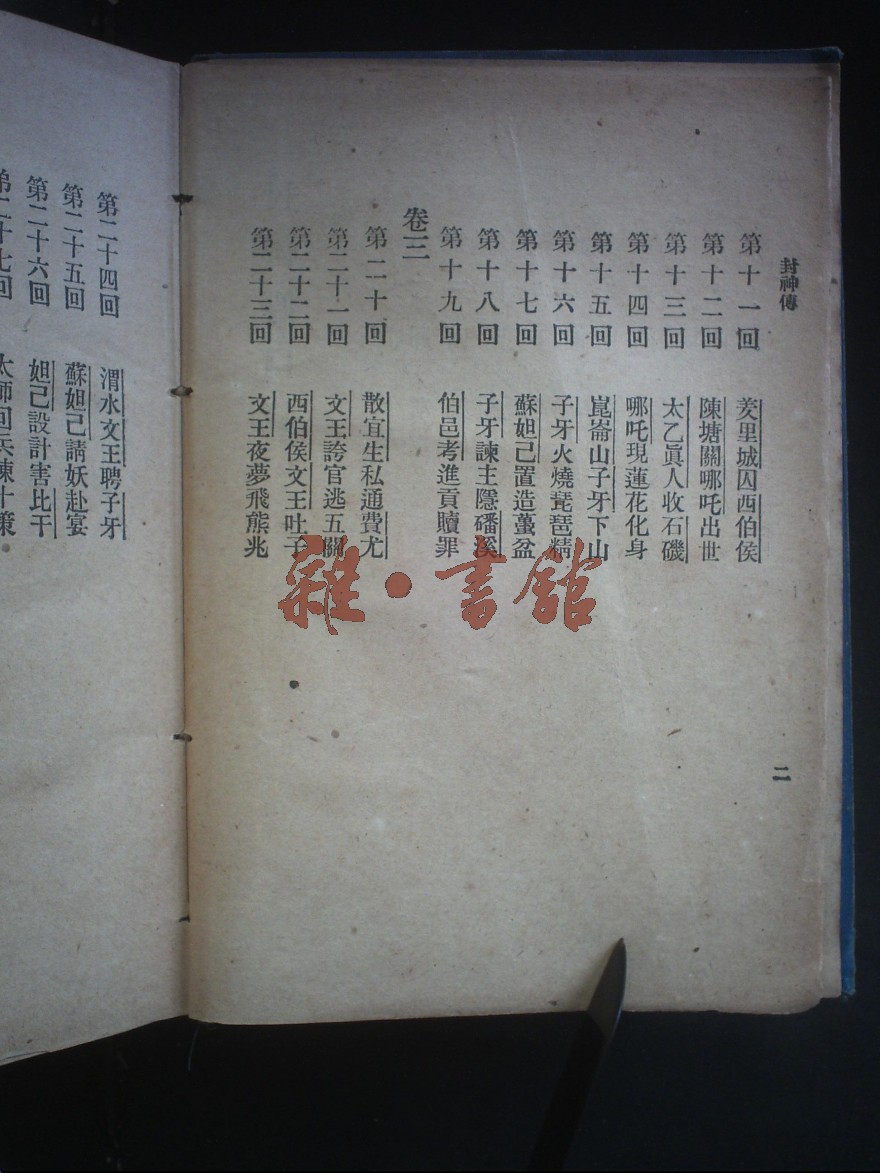 封神傳
第十一回　羑里城囚西伯侯
第十二回　陳塘關哪吒出世
第十三回　太乙眞人收石磯
第十四回　哪吒現蓮花化身
第十五回　崑崙山子牙下山
第十六回　子牙火燒琵琶精
第十七回　蘇妲己置造蠆盆
第十八回　子牙諫主隱磻溪
第十九回　伯邑考進貢贖罪
卷三
第二十回　散宜生私通費尤
第二十一回　文王誇官逃五關
第二十二回　西伯侯文王吐子
第二十三回　文王夜夢飛熊兆
二
第二十四回　渭水文王聘子牙
第二十五回　蘇妲己請妖赴宴
第二十六回　妲己設計害比干
第二十七回　太師回兵陳十策
雜·書館